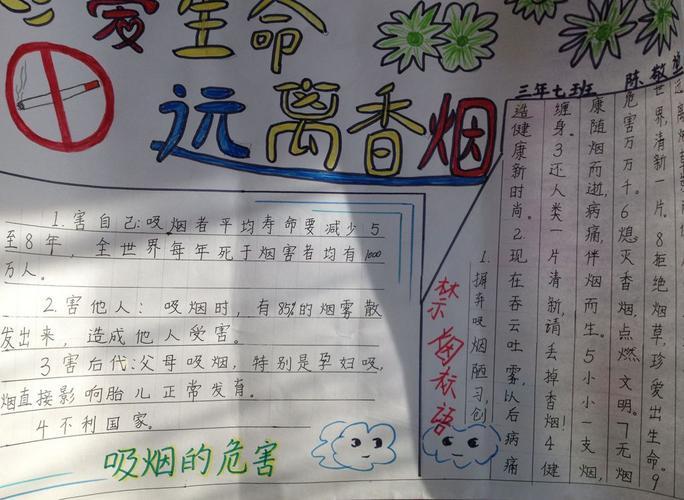 爱生命
远离香烟
三年七班 陈敬
1.害自己:吸烟者平均寿命要减少5
至8年,全世界每年死于烟害者均有1000
万人。
2.害他人:吸烟时,有85%的烟雾散
发出来,造成他人受害。
3害后代:父母吸烟,特别是孕妇吸,
烟直接影响胎儿正常发育。
4不利国家。
吸烟的危害
禁烟标语
1.摒弃吸烟陋习,创
造健康新时尚。2.现在吞云吐雾,以后病痛
缠身。3还人类一片清新,请丢掉香烟!4健
康随烟而逝,病痛伴烟而生。5小小一支烟,
危害万万千。6熄灭香烟,点燃文明。7无烟
世界,清新一片。8拒绝烟草,珍爱出生命。9
远离烟草